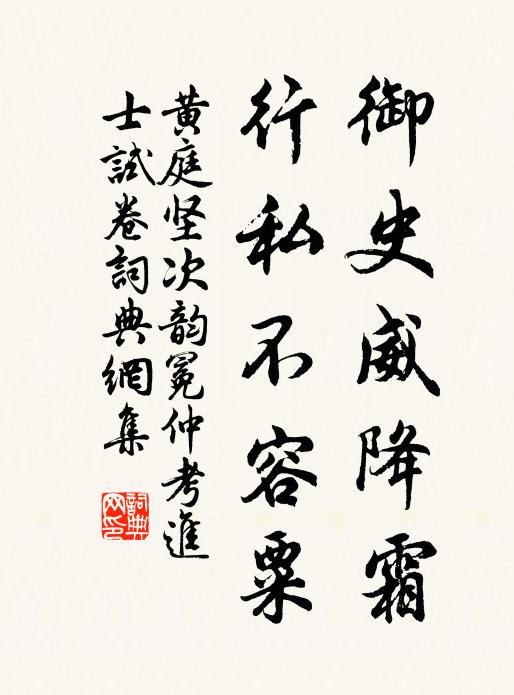 御史威降霜
行私不容粟
黄庭坚次韵冕仲考進
士試卷詞典網集
詞典網印